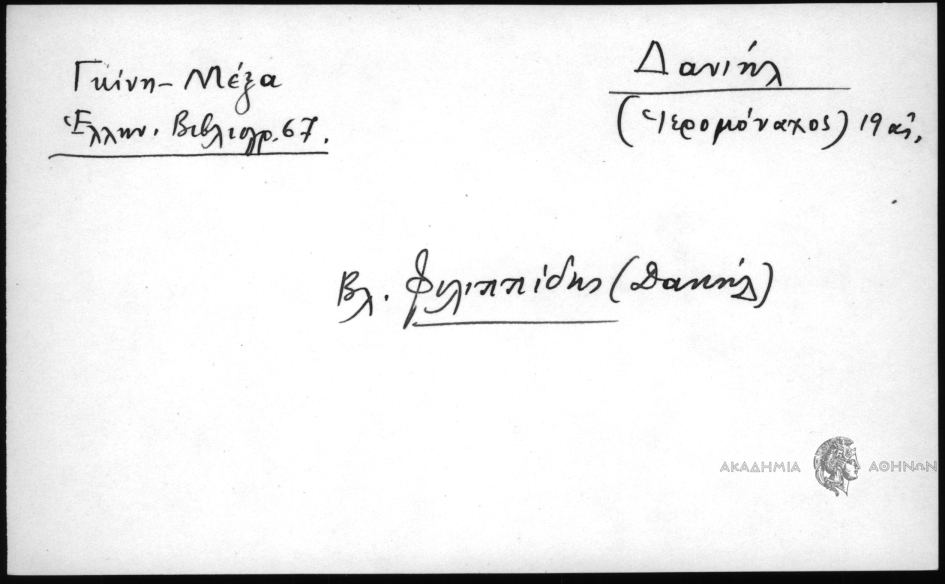 Γκίνη - Μέξα
Ἑλλην. Βιβλιογρ. 67.
Δανιήλ
(Ἱερομόναχος) 19 αἰ.
Βλ. Φιλιππίδης (Δανιήλ)
ΑΚΑΔΗΜΙΑ ΑΘΗΝΩΝ